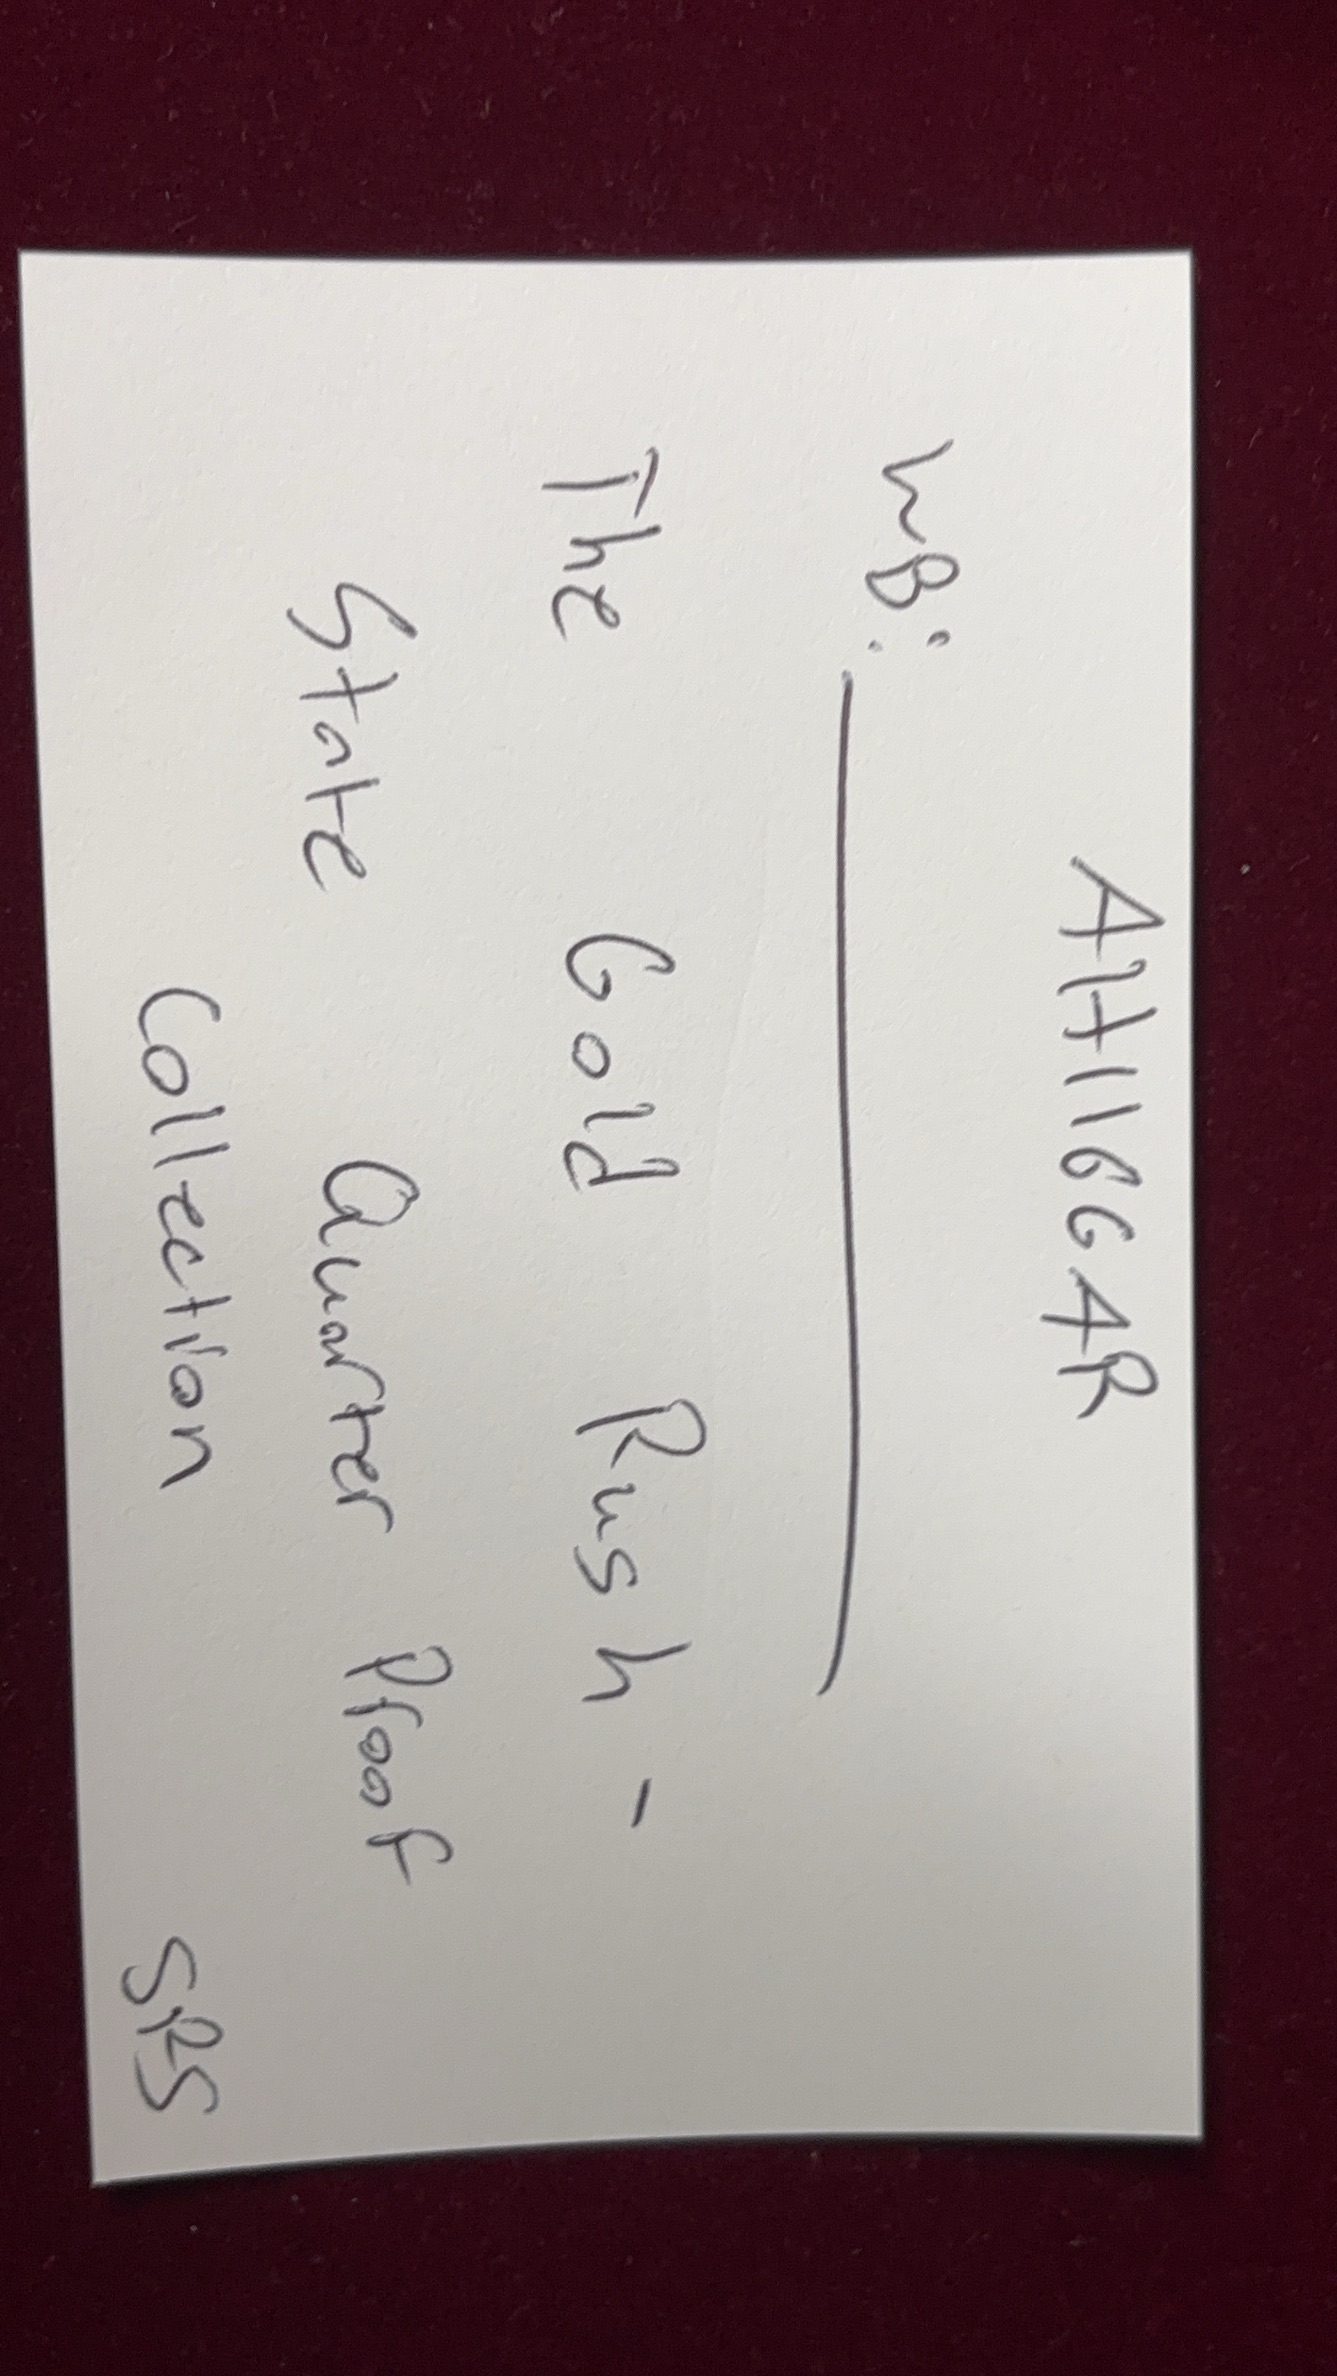 AH1166AR
WB:
The Gold Rush -
State Quarter Proof
Collection
SRS